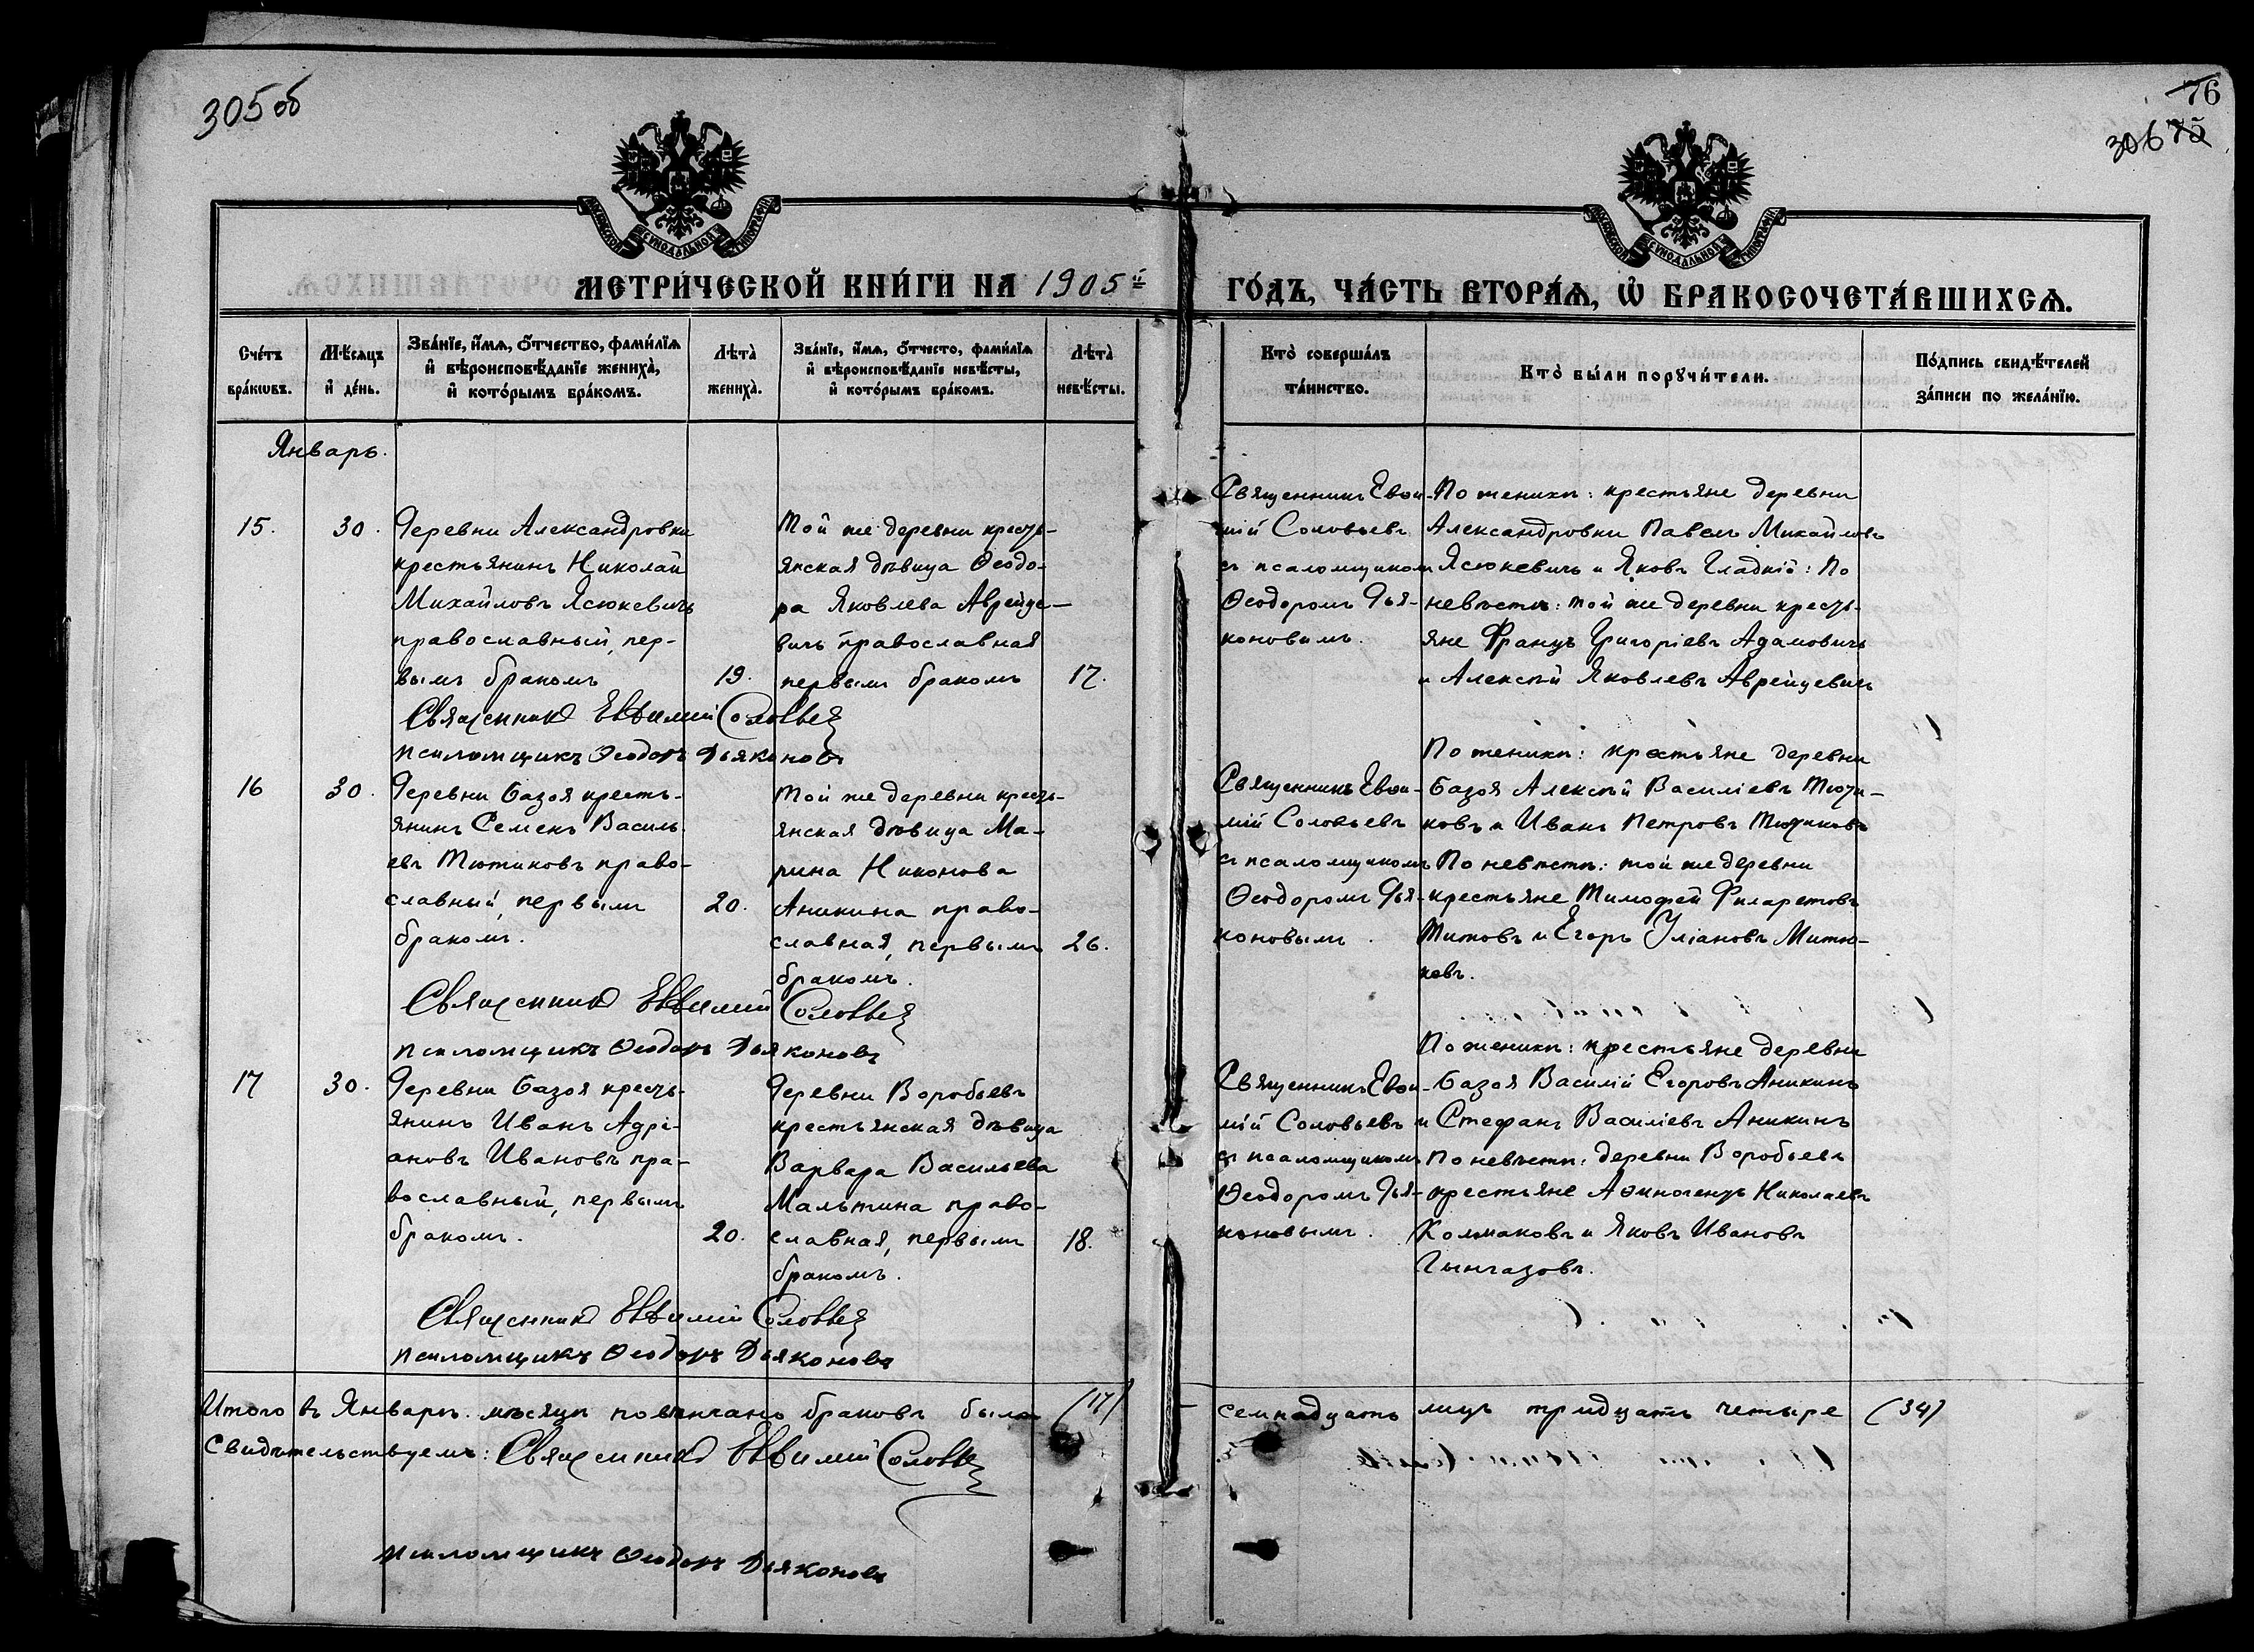 305 об
76
306 75
МЕТРИ́ЧЕСКОЙ КНИ́ГИ НА 1905й ГО́ДЪ, ЧА́СТЬ ВТОРА́Ѧ, Ѽ БРАКОСОЧЕТА́ВШИХСѦ.
Сче́тъ бра́кѡвъ.
Мѣ́сѧцъ и҆ де́нь.
Зва́нїе, и҆́мѧ, ѻ҆́тчество, фами́лїѧ
и҆ вѣроисповѣ́данїе жениха̀,
и҆ кото́рымъ бра́комъ.
Лѣта̀ жениха̀.
Зва́нїе, и҆́мѧ, ѻ҆́тчесто, фами́лїѧ
и҆ вѣроисповѣ́данїе невѣ́сты,
и҆ кото́рымъ бра́комъ.
Лѣта̀ невѣ́сты.
Кто̀ соверша́лъ
та́инство.
Кто̀ бы́ли порꙋчи́тели.
По́дпись свидѣ́телей
за́писи по жела́нїю.
Январь.
15.
30.
Деревни Александровки
крестьянинъ Николай
Михайловъ Ясюкевичъ
православный, пер-
вымъ бракомъ
19.
Той же деревни кресть-
янская дѣвица Ѳеодо-
ра Яковлева Аврейце-
вичъ православная
первымъ бракомъ
17.
Священникъ Евѳи-
мій Соловьевъ
съ псаломщикомъ
Ѳеодоромъ Дья-
коновымъ.
По женихѣ: крестьяне деревни
Александровки Павелъ Михайловъ
Ясюкевичъ и Яковъ Гладкій: По
невѣстѣ: той же деревни кресть-
яне Францъ Григоріевъ Адамовичъ
и Алексѣй Яковлевъ Аврейцевичъ
Священникъ Евѳимій Соловьев
псаломщикъ Ѳеодоръ Дьяконовъ
16
30.
Деревни Базоя кресть-
янинъ Семенъ Василь-
евъ Тютиковъ право-
славный, первымъ
бракомъ.
20.
Той же деревни кресть-
янская дѣвица Ма-
рина Никонова
Аникина право-
славная, первымъ
бракомъ.
26.
Священникъ Евѳи-
мій Соловьевъ
съ псаломщикомъ
Ѳеодоромъ Дья-
коновымъ.
По женихѣ: крестьяне деревни
Базоя Алексѣй Василіевъ Тюти-
ковъ и Иванъ Петровъ Тютиковъ
По невѣстѣ: той же деревни
крестьяне Тимофей Филаретовъ
Титовъ и Егоръ Уліановъ Митю-
ковъ.
Священникъ Евѳимій Соловьев
псаломщикъ Ѳеодоръ Дьяконовъ
17
30.
Деревни Базоя кресть-
янинъ Иванъ Адрі-
ановъ Ивановъ пра-
вославный, первымъ
бракомъ.
20.
Деревни Воробьевъ
крестьянская дѣвица
Варвара Васильева
Мальтина право-
славная, первымъ
бракомъ.
18.
Священникъ Евѳи-
мій Соловьевъ
съ псаломщикомъ
Ѳеодоромъ Дья-
коновымъ.
По женихѣ: крестьяне деревни
Базоя Василій Егоровъ Аникинъ
и Стефанъ Василіевъ Аникинъ
По невѣстѣ: деревни Воробьевъ
крестьяне Аѳиногенъ Николаевъ
Колмаковъ и Яковъ Ивановъ
Гынгазовъ.
Священникъ Евѳимій Соловьев
псаломщикъ Ѳеодоръ Дьяконовъ
Итого въ Январѣ мѣсяцѣ повѣнчано браковъ было (17) семнадцать лицъ тридцать четыре (34)
Свидѣтельствуемъ: Священникъ Евѳимій Соловьев
псаломщикъ Ѳеодоръ Дьяконовъ